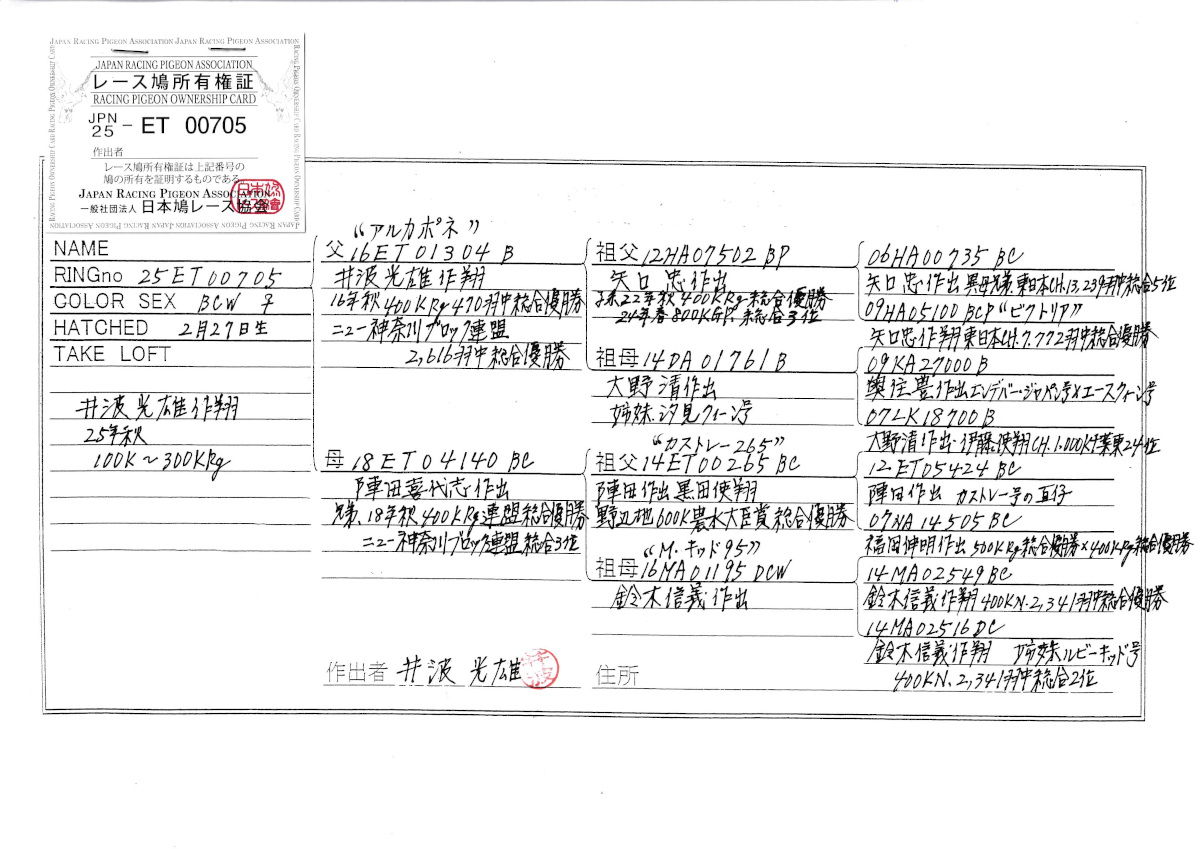 JAPAN RACING PIGEON ASSOCIATION JAPAN RACING PIGEON ASSOCIATION
JAPAN RACING PIGEON ASSOCIATION
レース鳩所有権証
RACING PIGEON OWNERSHIP CARD
JPN
25 - ET 00705
作出者
レース鳩所有権証は上記番号の
鳩の所有を証明するものである
JAPAN RACING PIGEON ASSOCIATION
一般社団法人 日本鳩レース協会
NAME
RINGno 25ET00705
COLOR SEX BCW ♀
HATCHED 2月27日生
TAKE LOFT
井波光雄作翔
25年秋
100K〜300KRg
"アルカポネ"
父 16ET01304 B
井波光雄作翔
16年秋400KRg470羽中総合優勝
ニュー神奈川ブロック連盟
2,616羽中総合優勝
母 18ET04140 BC
陣田喜代志作出
兄弟、18年秋400KRg連盟総合優勝
ニュー神奈川ブロック連盟総合3位
作出者 井波光雄
祖父 12HA07502 BP
矢口忠作出
孫22年秋400KRg総合優勝
24年春800KGP総合3位
祖母 14DA01761B
大野清作出
姉妹、汐見クィーン号
"カストレー265"
祖父 14ET00265 BC
陣田作出黒田使翔
野辺地600K農水大臣賞総合優勝
"M.キッド95"
祖母 16MA01195 DCW
鈴木信義作出
住所
06HA00735 BC
矢口忠作出異母兄弟、東日本CH,13,239羽中総合5位
09HA05100 BCP "ビクトリア"
矢口忠作翔東日本CH.7,772羽中総合優勝
09KA27000B
奥住豊作出エンデバー・ジャパン号×エースクィーン号
07LK18700B
大野清作出・伊藤使翔CH.1.000K千葉東24位
12.ET05424 BC
陣田作出 カストレー号の直仔
07NA14505 BC
福田伸明作出500KRg総合優勝×400KRg総合優勝
14MA02549BC
鈴木信義作翔400KN.2,341羽中総合優勝
14MA02516DC
鈴木信義作翔 姉妹ルビーキッド号
400KN.2,341羽中総合2位